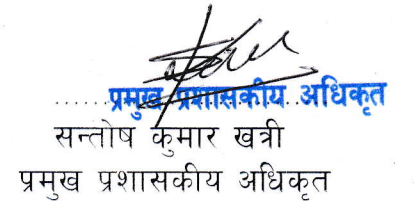 प्रमुख प्रशासकीय अधिकृत
सन्तोष कुमार खत्री
प्रमुख प्रशासकीय अधिकृत